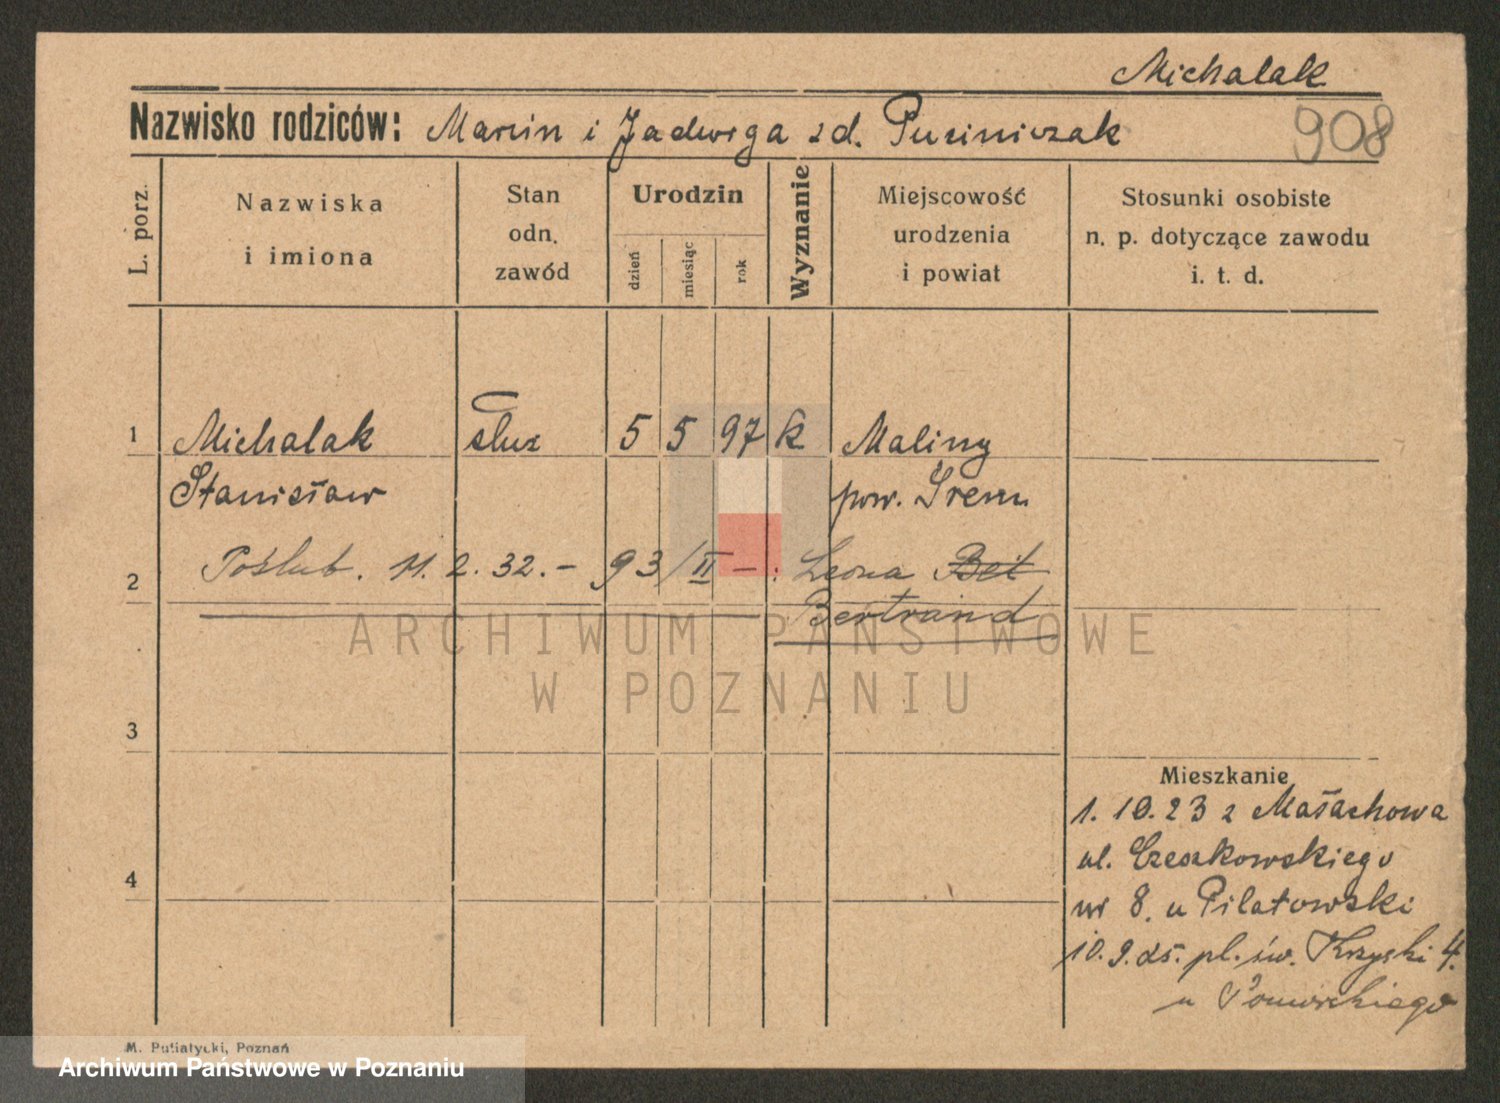 Michalak
Nazwisko rodziców: Marcin i Jadwiga zd.
908
L. porz.
Nazwiska
i imiona
Stan
odn.
zawód
Urodzin
dzień
miesiąc
rok
Wyznanie
Miejscowość
urodzenia
i powiat
Stosunki osobiste
n. p. dotyczące zawodu
i. t. d.
1 Michalak 5 5 97 k Maliny
Stanisław pow. Śrem
2 Poślub. 11. 2. 32. - 93/II - : Leona Bet
Bertrand
3
Mieszkanie
1. 10. 23 z Małachowa
ul. Czeszkowskiego
4
nr 8. u Pilatowski
10. 9. 25. pl. św. 4.
u
M. Putiatycki, Poznań
ARCHIWUM PAŃSTWOWE
W POZNANIU
Archiwum Państwowe w Poznaniu